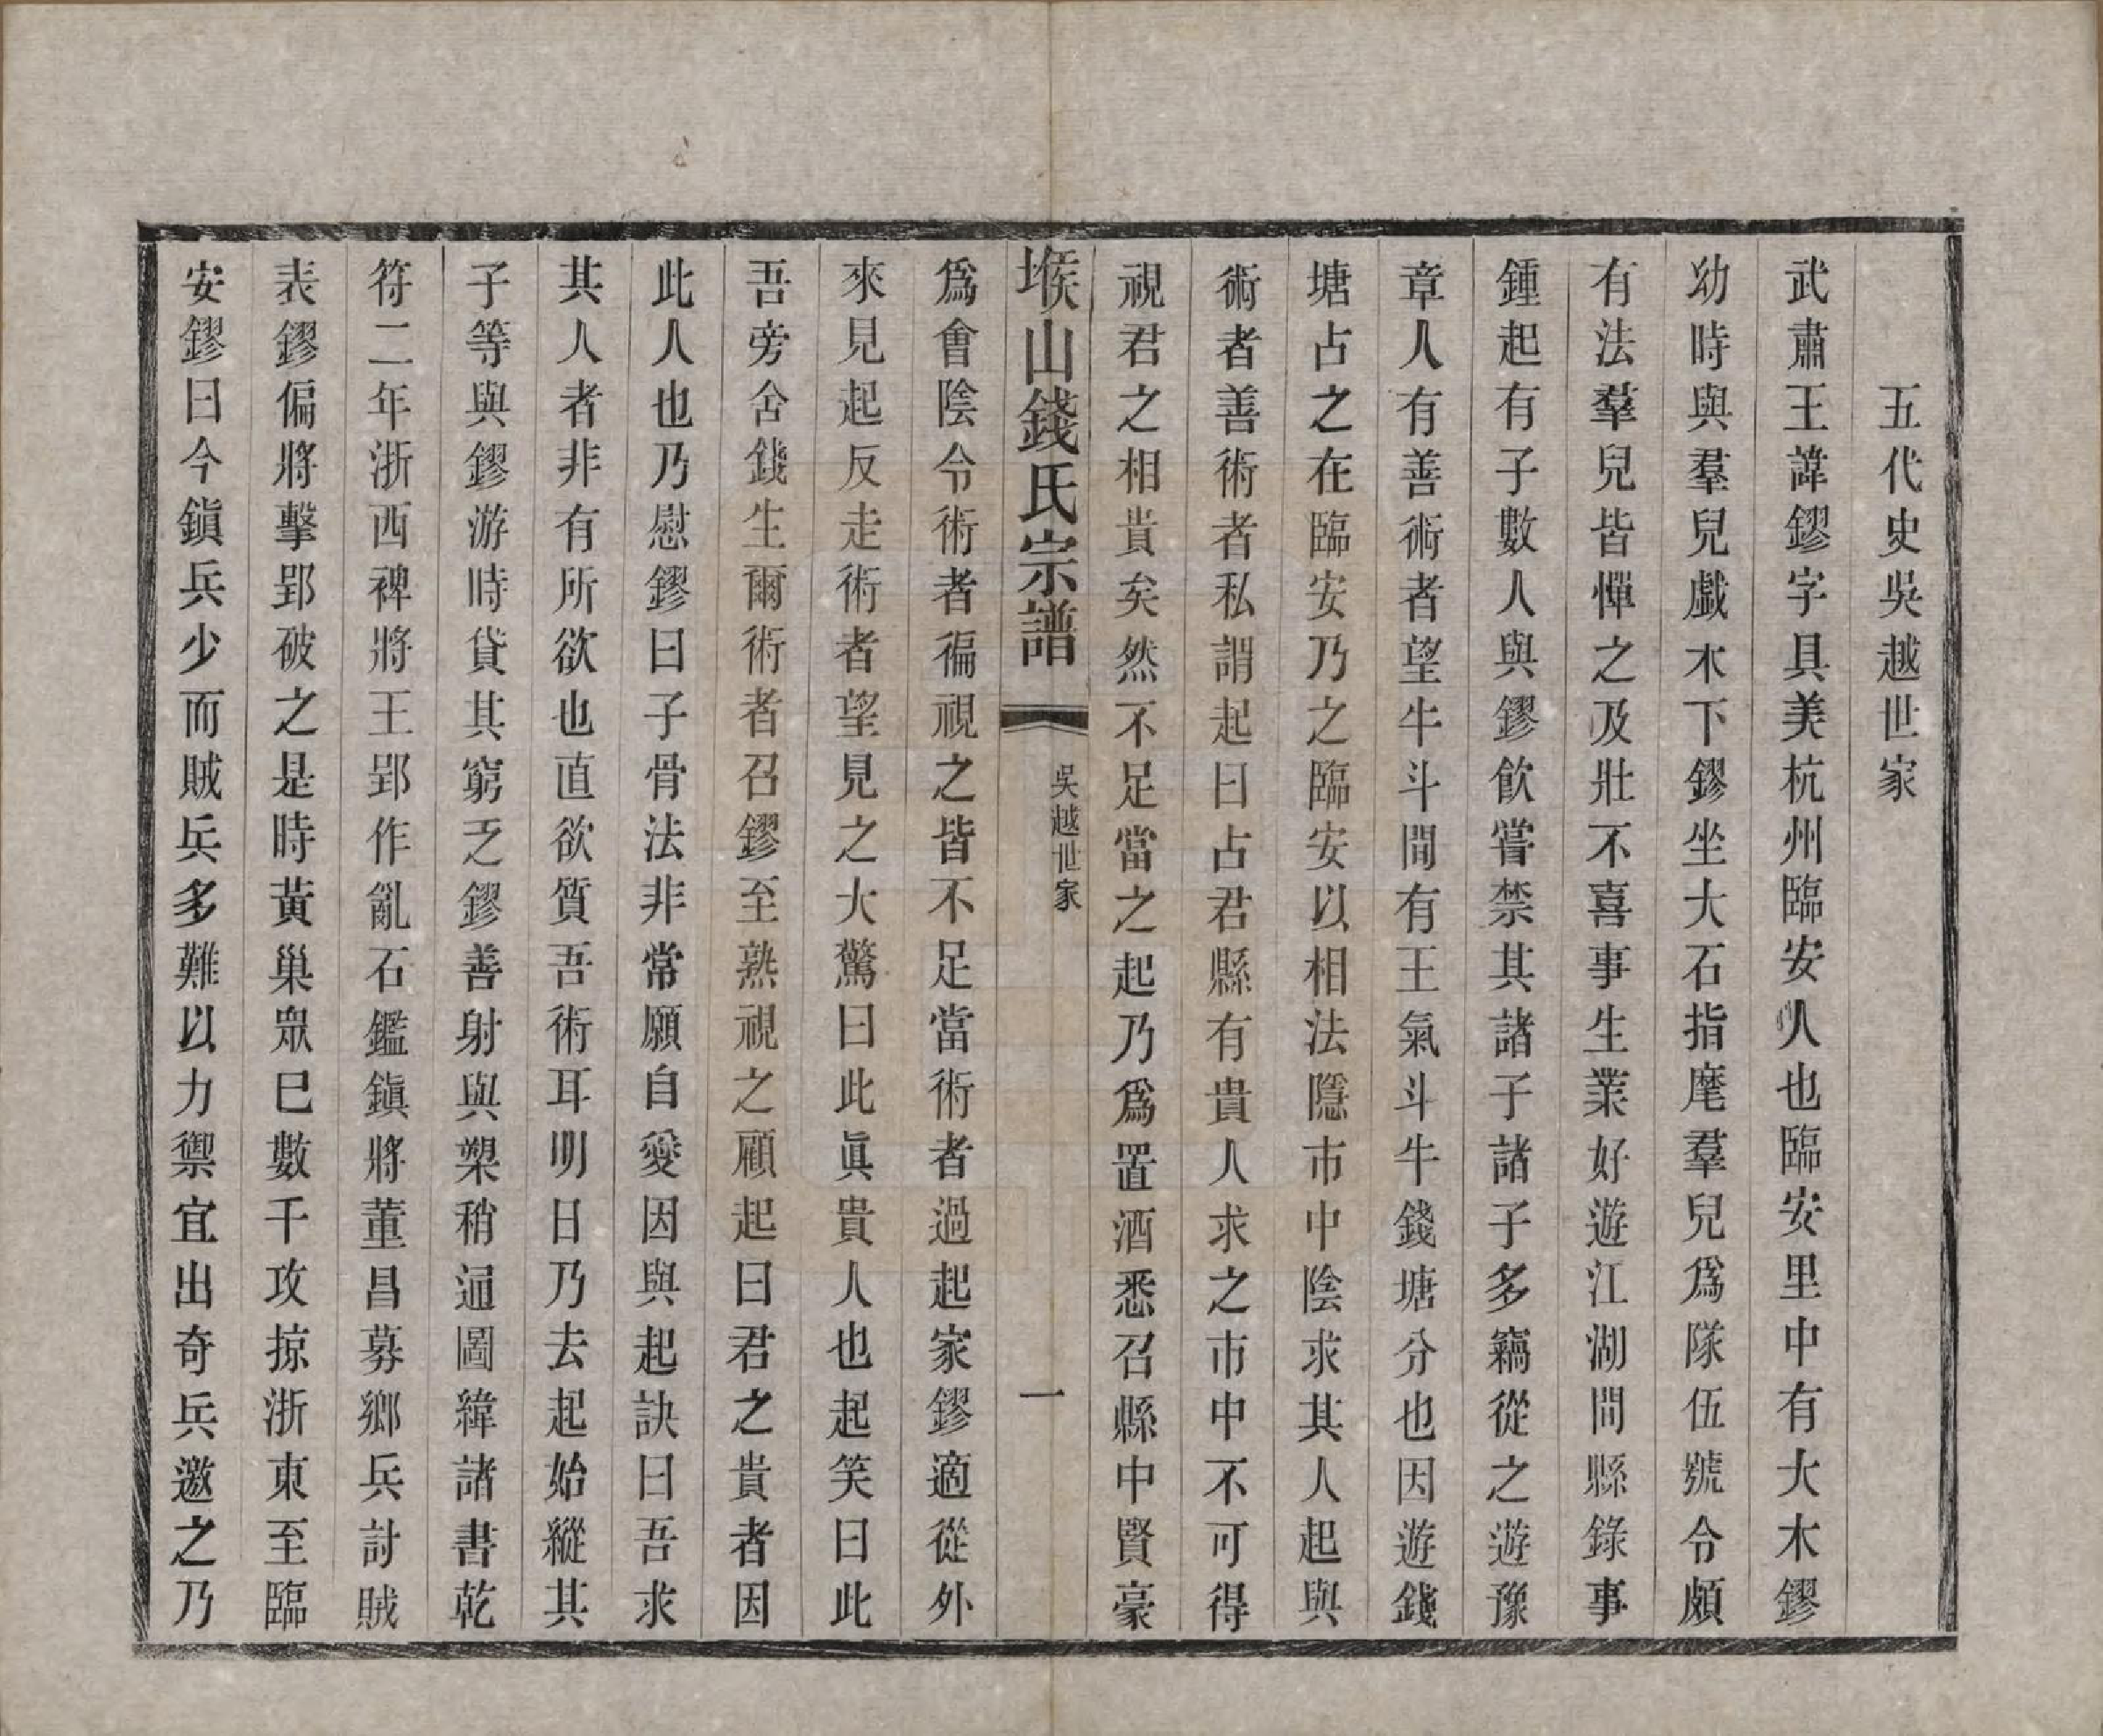 五代史吳越世家
武肅王諱鏐字具美杭州臨安人也臨安里中有大木鏐
幼時與羣兒戲木下鏐坐大石指麾羣兒爲隊伍號令頗
有法羣兒皆憚之及壯不喜事生業好遊江湖間縣錄事
鍾起有子數人與鏐飲嘗禁其諸子諸子多竊從之遊豫
章人有善術者望牛斗間有王氣斗牛錢塘分也因遊錢
塘占之在臨安乃之臨安以相法隱市中陰求其人起與
術者善術者私謂起曰占君縣有貴人求之市中不可得
視君之相貴矣然不足當之起乃爲置酒悉召縣中賢豪
堠山錢氏宗譜
吳越世家
一
爲會陰令術者徧視之皆不足當術者過起家鏐適從外
來見起反走術者望見之大驚曰此眞貴人也起笑曰此
吾旁舍錢生爾術者召鏐至熟視之顧起曰君之貴者因
此人也乃慰鏐曰子骨法非常願自愛因與起訣曰吾求
其人者非有所欲也直欲質吾術耳明日乃去起始縱其
子等與鏐游時貸其窮乏鏐善射與槊稍通圖緯諸書乾
符二年浙西裨將王郢作亂石鑑鎭將董昌募鄉兵討賊
表鏐偏將擊郢破之是時黃巢衆巳數千攻掠浙東至臨
安鏐曰今鎭兵少而賊兵多難以力禦宜出奇兵邀之乃